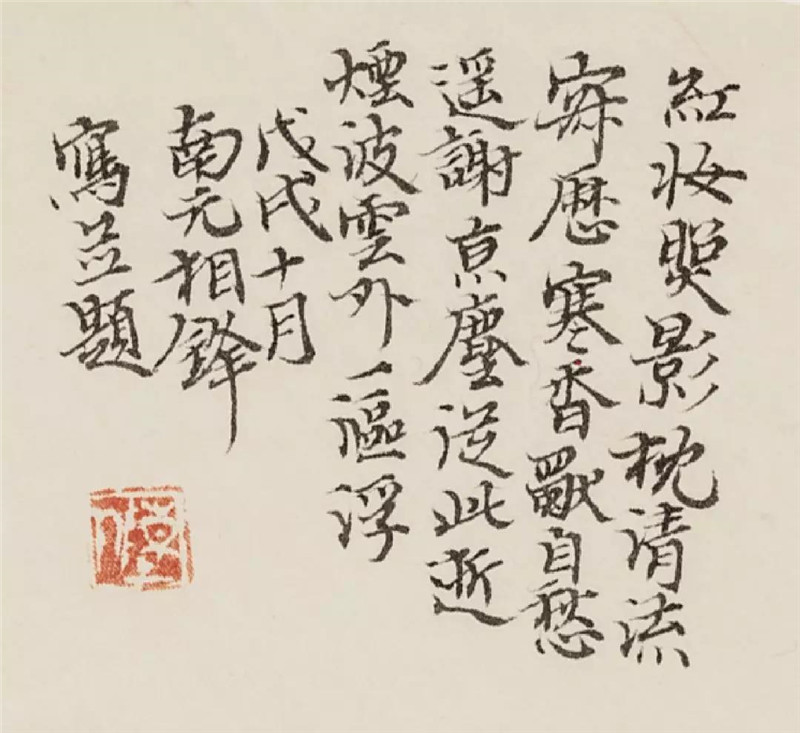 紅妝照影枕清流
寂歷寒香獨自愁
遥謝京塵從此逝
煙波雲外一漚浮
戊戌十月
南元相鋒
寫並題